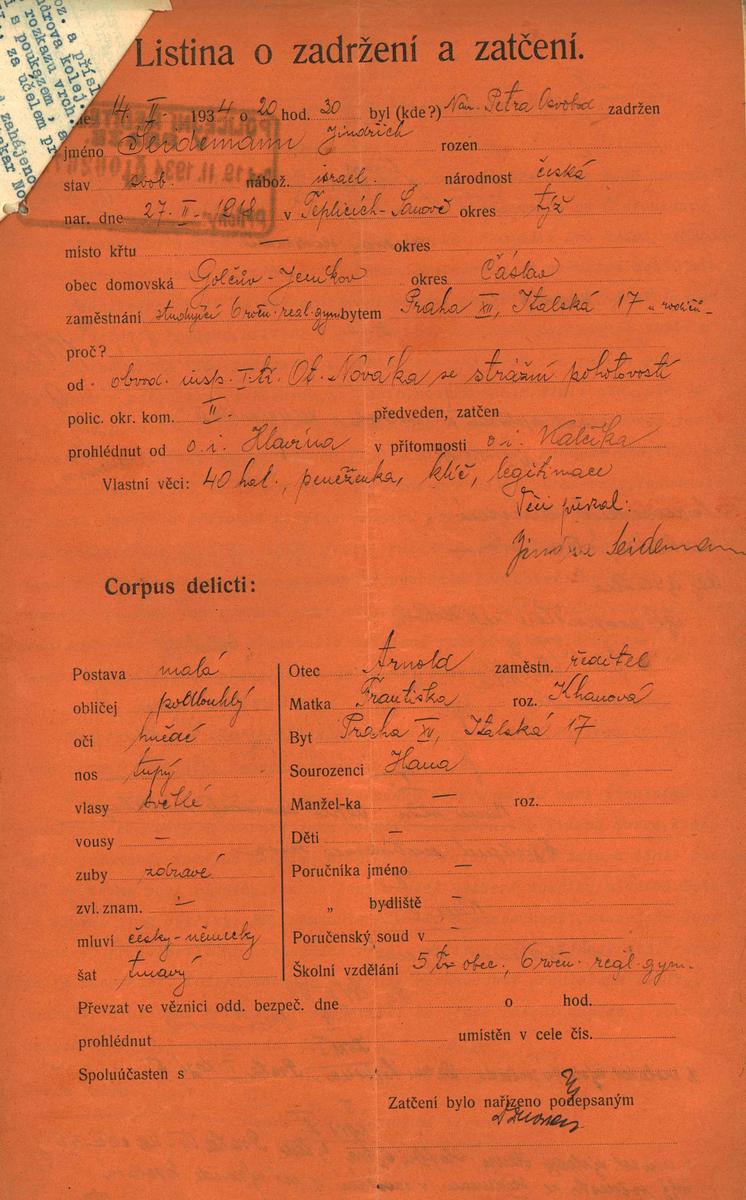 oz. a přísl
ndrova kolej.
rozkazu vrch
s poukazem, a
za účelem př
zahájeno
skar No
Listina o zadržení a zatčení.
14. II. 1934 o 20 hod. 30 byl (kde?) Nám. Petra Osvobod zadržen
jméno Seidemann Jindřich rozen
stav svob. nábož. israel. národnost česká
nar. dne 27. II. 1918 v Teplicích-Šanově okres týž
místo křtu — okres
obec domovská Golčův-Jeníkov okres Čáslav
zaměstnání studující 6 roč. real. gym bytem Praha XII, Italská 17 u rodičů
proč?
od obvod. insp. I. tř. Ot. Nováka se strážní pohotovostí
polic. okr. kom. II. předveden, zatčen
prohlédnut od o. i. Hlavina v přítomnosti o i. Kalčíka
Vlastní věci: 40 hal., peněženka, klíč, legitimace
Věci převzal:
Jindra Seidemann
Corpus delicti:
Postava malá
obličej podlouhlý
oči hnědé
nos tupý
vlasy světlé
vousy —
zuby zdravé
zvl. znam. —
mluví česky-německy
šat tmavý
Otec Arnold zaměstn. ředitel
Matka Františka roz. Khanová
Byt Praha XII, Italská 17
Sourozenci Hana
Manžel-ka — roz.
Děti —
Poručníka jméno —
„ bydliště —
Poručenský soud v —
Školní vzdělání 5 tř. obec., 6 roč. regl. gym.
Převzat ve věznici odd. bezpeč. dne o hod.
prohlédnut umístěn v cele čís.
Spoluúčasten s
Zatčení bylo nařízeno podepsaným